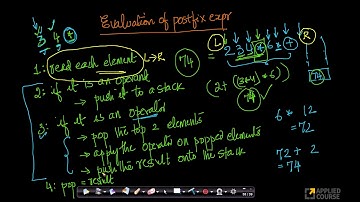 Evaluation of postfix expr
3 4 +
1: read each element L→R
2: if it is an operant
→ push it to a stack
3: if it is an operator
→ pop the top 2 elements
→ apply the operator on popped elements
→ push the result onto the stack
4: pop = result
74
= L 2 3 4 * 6 * + R
(2 + (3*4) * 6)
74
74
6 * 12
= 72
72 + 2
= 74
APPLIED
COURSE